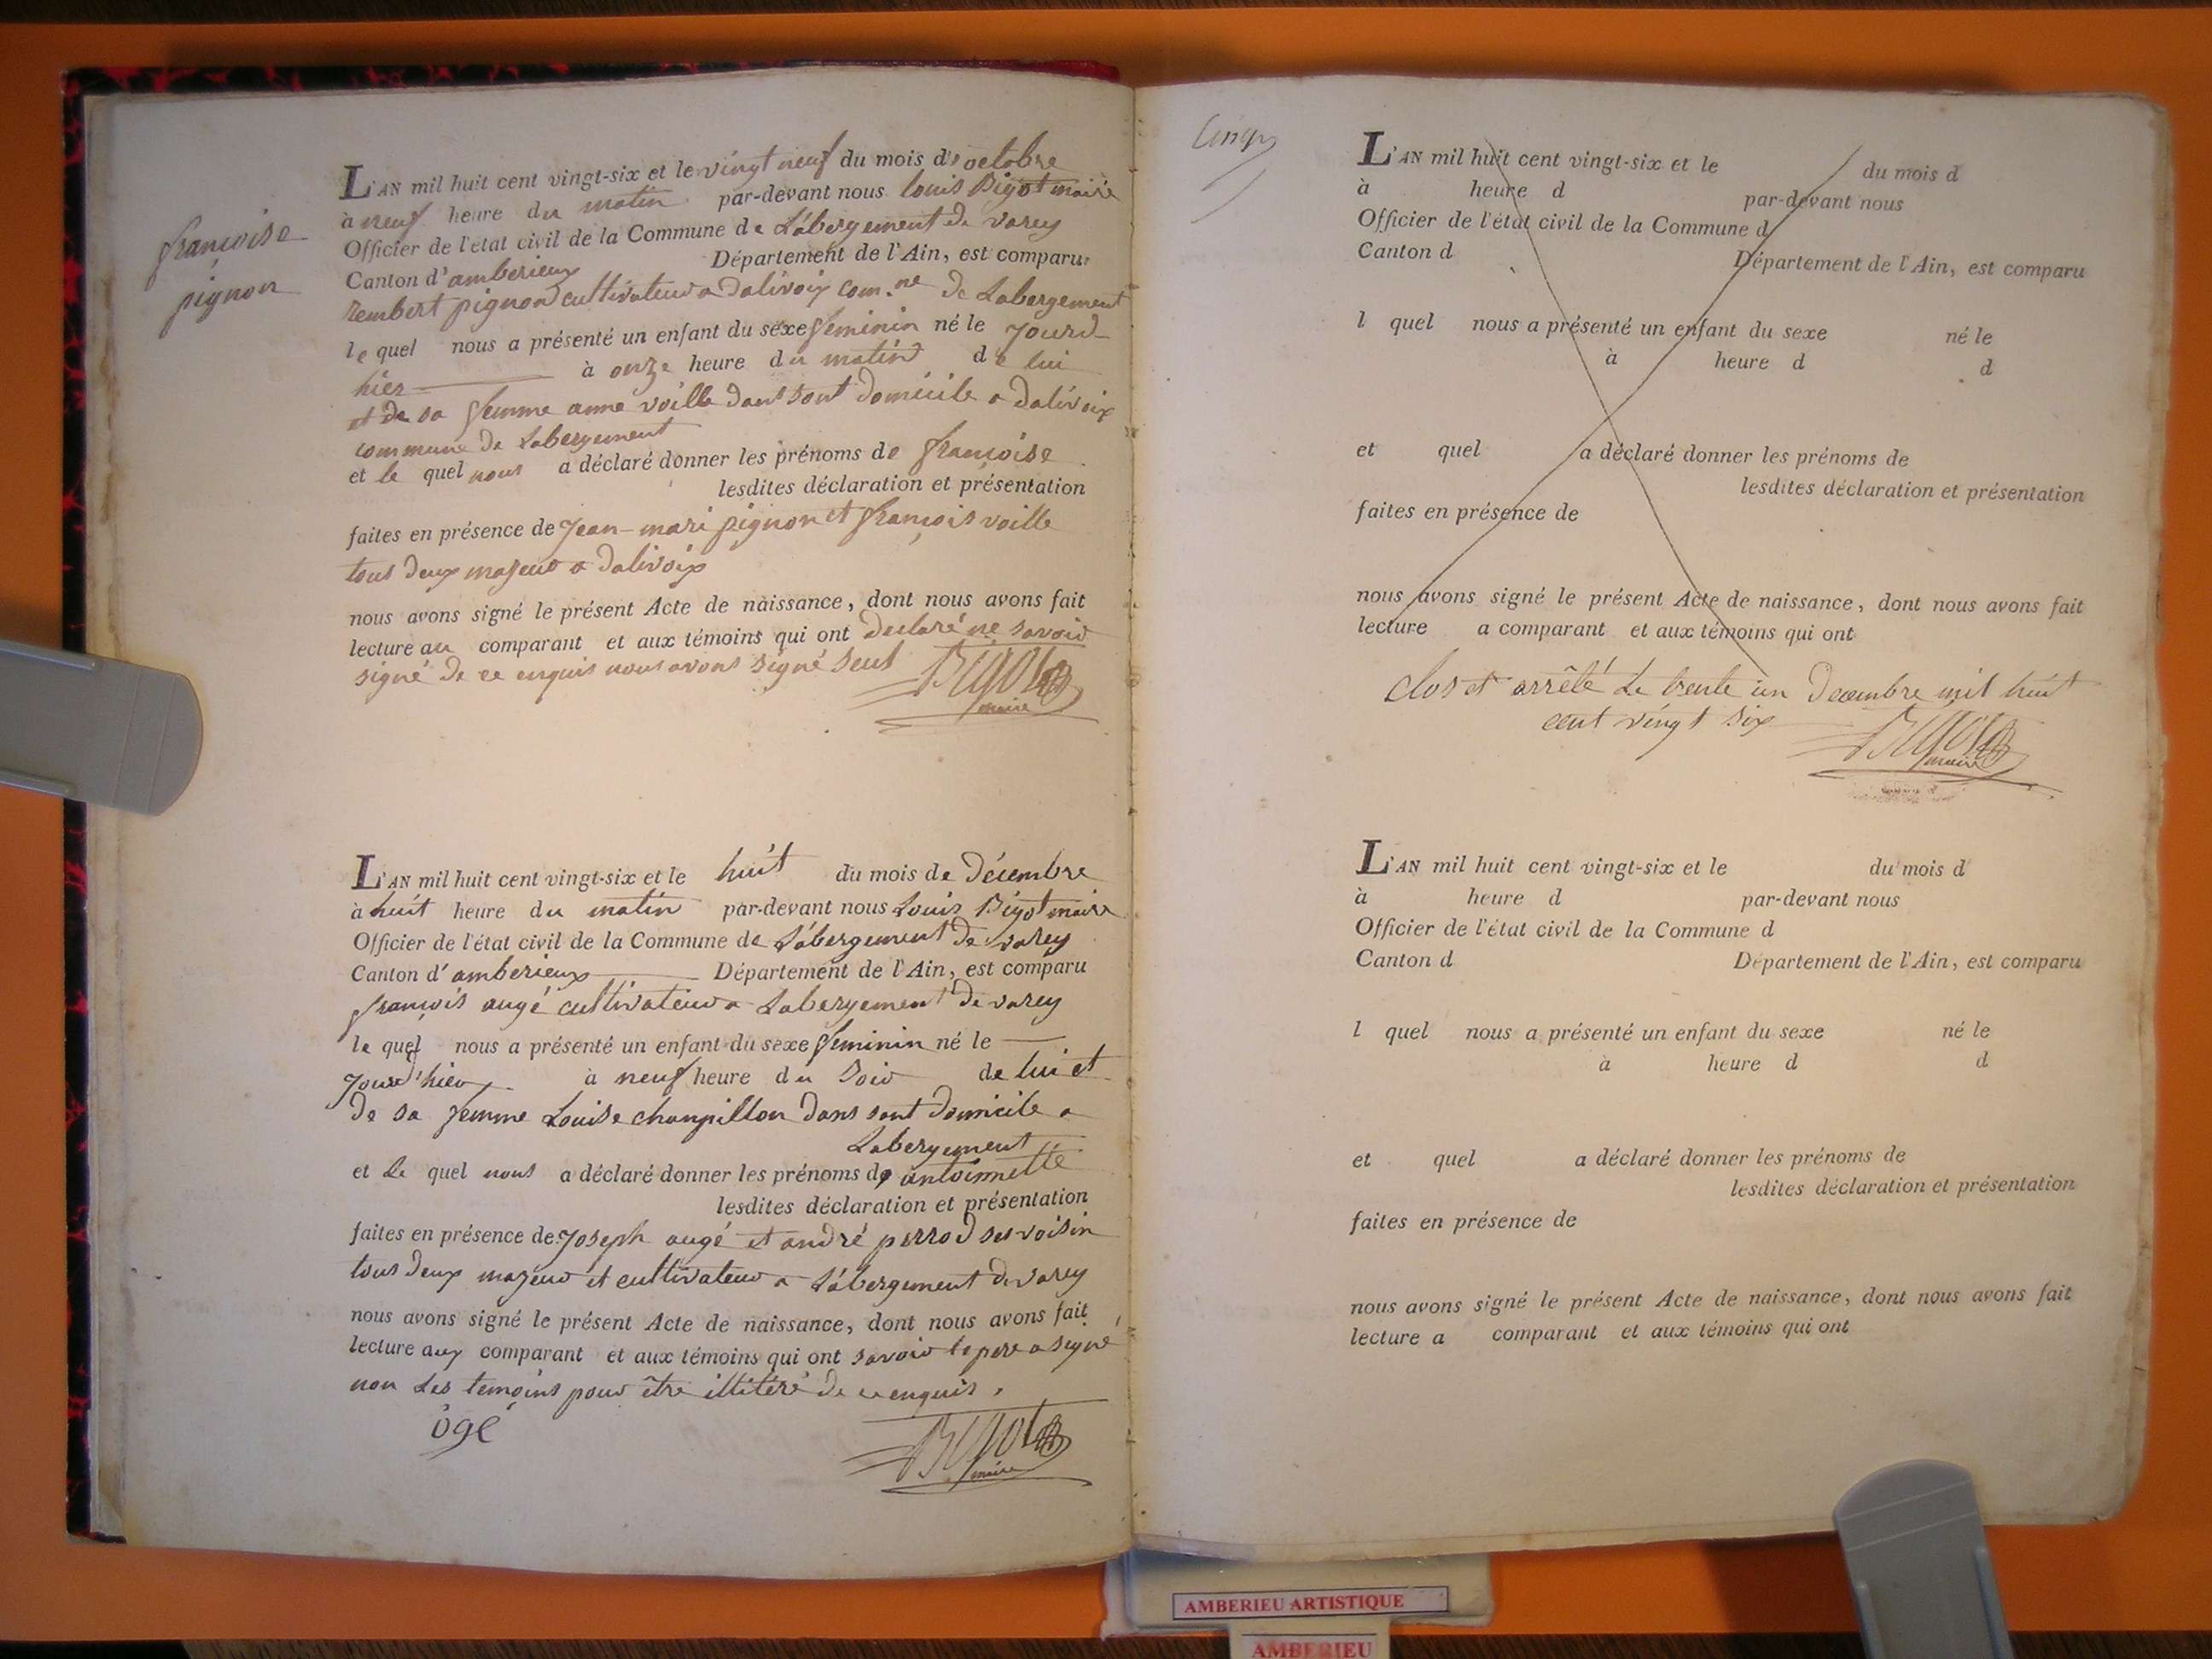 françoise
pignon
L'AN mil huit cent vingt-six et le vingt neuf du mois de octobre
à neuf heure du matin par-devant nous louis Bigot maire
Officier de l'état civil de la Commune de Labergement de varey
Canton d'amberieux Département de l'Ain, est comparu
rembert pignon cultivateur a Dalivoix com.ne de Labergement
le quel nous a présenté un enfant du sexe feminin né le jourd
hier à onze heure du matin de lui
et de sa femme anne voille dans sont domicile a dalivoix
commune de Labergement
et le quel nous a déclaré donner les prénoms de françoise
lesdites déclaration et présentation
faites en présence de Jean-mari pignon et françois voille
tous deux majeur a Dalivoix
nous avons signé le présent Acte de naissance, dont nous avons fait
lecture au comparant et aux témoins qui ont declaré ne savoir
signé de ce enquis nous avons signé seul Bigot
maire
L'AN mil huit cent vingt-six et le huit du mois de Décembre
à huit heure du matin par-devant nous Louis Bigot maire
Officier de l'état civil de la Commune de Labergement de varey
Canton d'amberieux Département de l'Ain, est comparu
françois augé cultivateur a Labergement de varey
le quel nous a présenté un enfant du sexe feminin né le
jourd'hier à neuf heure du soir de lui et
de sa femme Louise champillon dans sont domicile a
Labergement
et Le quel nous a déclaré donner les prénoms de antoinette
lesdites déclaration et présentation
faites en présence de Joseph augé et andré perrod ses voisin
tous deux majeur et cultivateur a Labergement de varey
nous avons signé le présent Acte de naissance, dont nous avons fait
lecture aux comparant et aux témoins qui ont savoir le pere a signé
non Les temoins pour être illitéré de ce enquis.
ogé Bigot
maire
Cinq
L'AN mil huit cent vingt-six et le du mois d
à heure d par-devant nous
Officier de l'état civil de la Commune d
Canton d Département de l'Ain, est comparu
l quel nous a présenté un enfant du sexe né le
à heure d d
et quel a déclaré donner les prénoms de
lesdites déclaration et présentation
faites en présence de
nous avons signé le présent Acte de naissance, dont nous avons fait
lecture a comparant et aux témoins qui ont
clos et arrêté Le trente un Decembre mil huit
cent vingt six Bigot
maire
L'AN mil huit cent vingt-six et le du mois d
à heure d par-devant nous
Officier de l'état civil de la Commune d
Canton d Département de l'Ain, est comparu
l quel nous a présenté un enfant du sexe né le
à heure d d
et quel a déclaré donner les prénoms de
lesdites déclaration et présentation
faites en présence de
nous avons signé le présent Acte de naissance, dont nous avons fait
lecture a comparant et aux témoins qui ont
AMBERIEU ARTISTIQUE
AMBERIEU